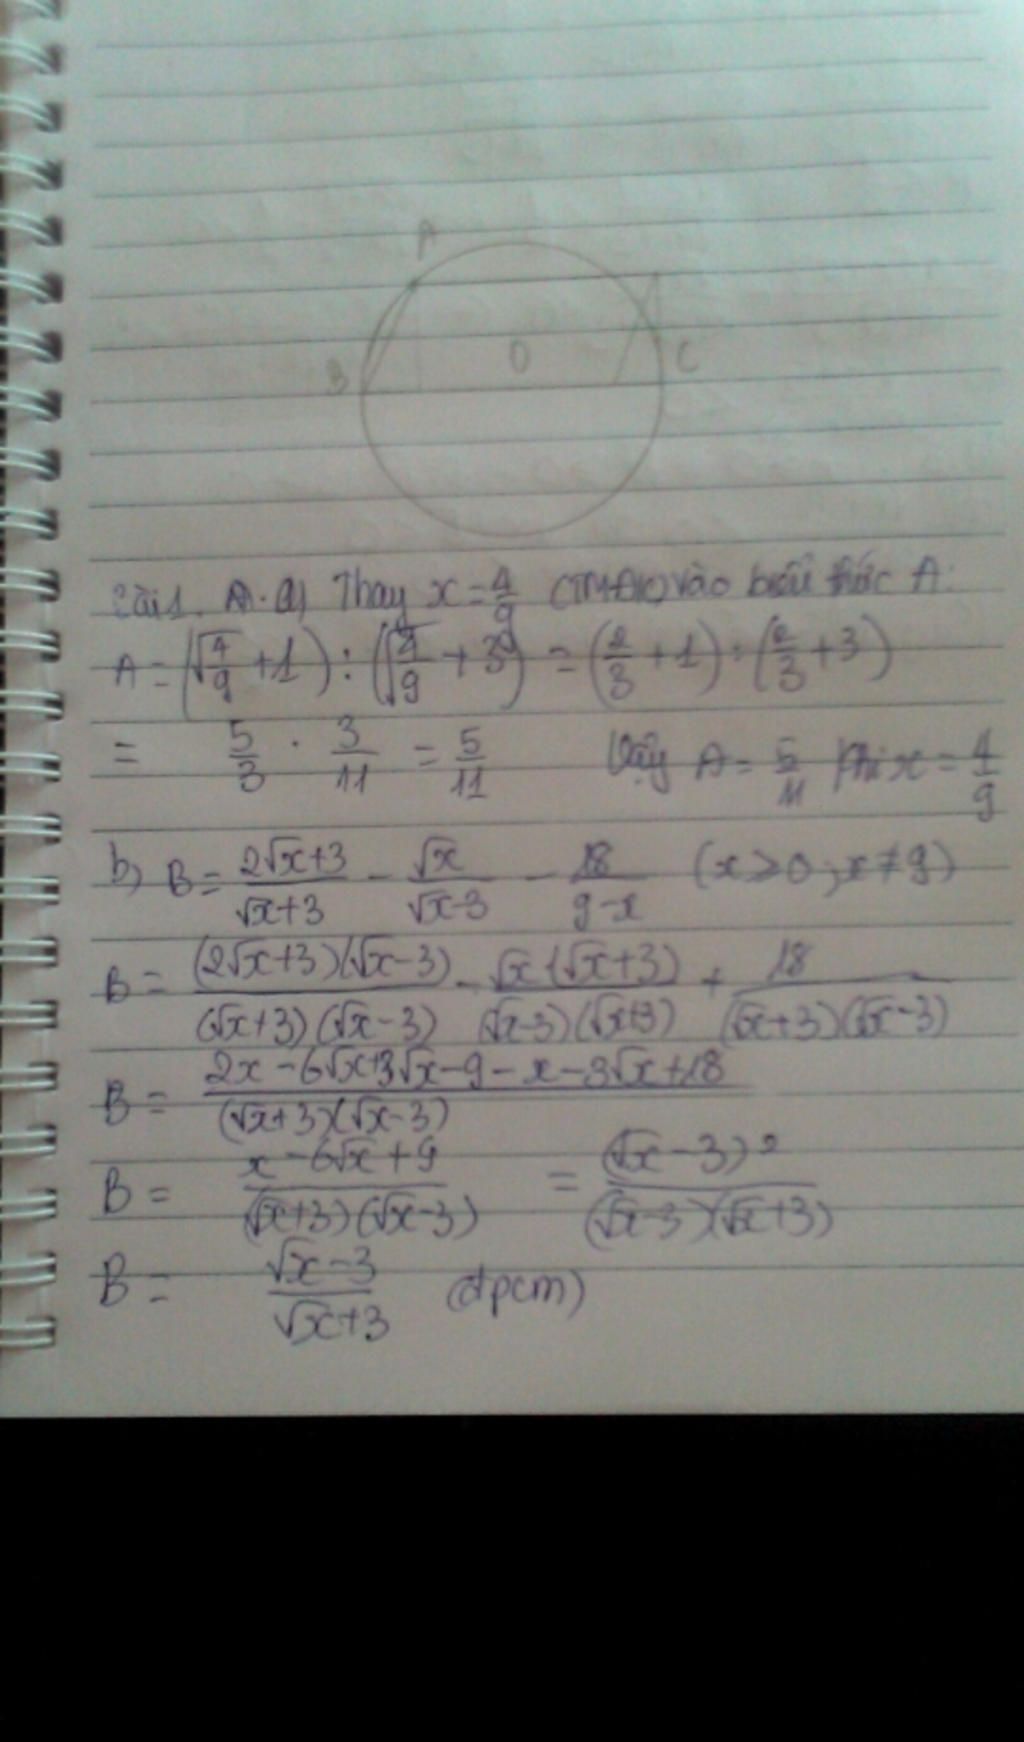 A
O
B
C
Bài 1. A. a) Thay x = 4/9 (TMĐK) vào biểu thức A:
A = (√(4/9) + 1) : (√(4/9) + 3) = (2/3 + 1) : (2/3 + 3)
= 5/3 . 3/11 = 5/11 Vậy A = 5/11 khi x = 4/9
b) B = (2√x+3)/(√x+3) - √x/(√x-3) - 18/(9-x) (x ≥ 0; x ≠ 9)
B = (2√x+3)(√x-3)/(√x+3)(√x-3) - √x(√x+3)/(√x-3)(√x+3) + 18/(√x+3)(√x-3)
B = (2x - 6√x+3√x-9-x-3√x+18)/(√x+3)(√x-3)
B = (x-6√x+9)/(√x+3)(√x-3) = (√x-3)²/(√x-3)(√x+3)
B = (√x-3)/(√x+3) (đpcm)